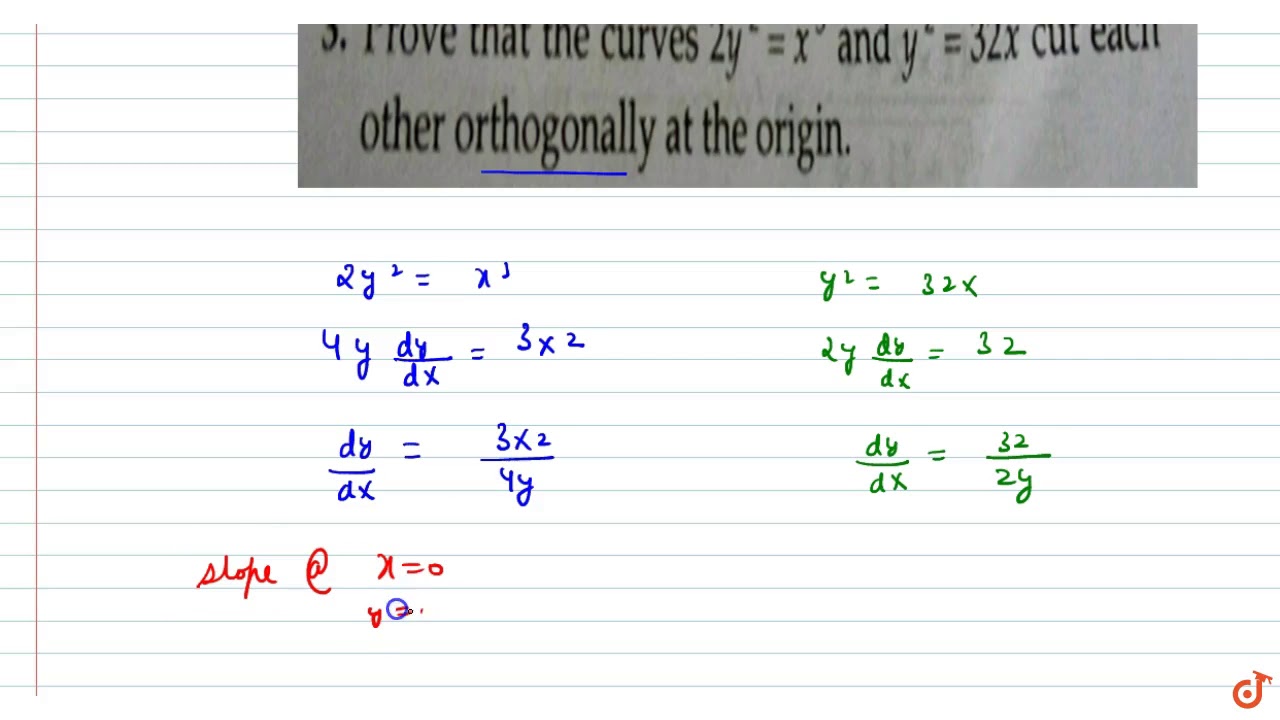 3. Prove that the curves 2y² = x³ and y² = 32x cut each
other orthogonally at the origin.
2y² = x³
y² = 32x
4y dy/dx = 3x2
2y dy/dx = 32
dy/dx = 3x2/4y
dy/dx = 32/2y
slope @ x=0
y =